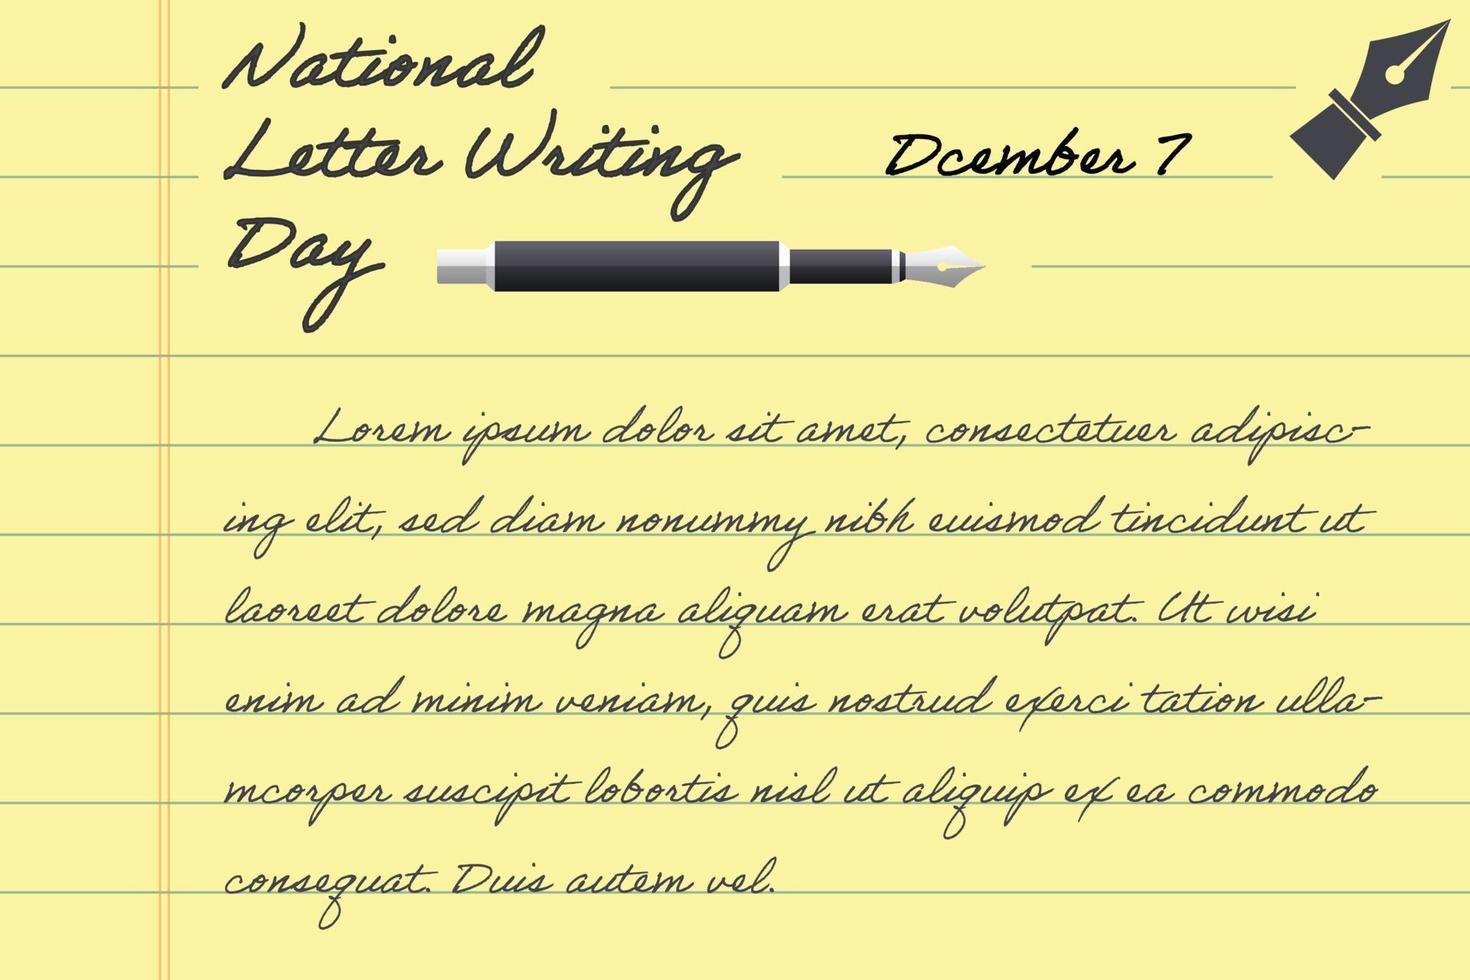 National
Letter Writing
Day
Dcember 7
Lorem ipsum dolor sit amet, consectetuer adipisc-
ing elit, sed diam nonummy nibh euismod tincidunt ut
laoreet dolore magna aliquam erat volutpat. Ut wisi
enim ad minim veniam, quis nostrud exerci tation ulla-
mcorper suscipit lobortis nisl ut aliquip ex ea commodo
consequat. Duis autem vel.